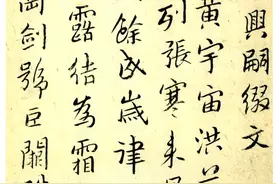 興嗣綴文
黃宇宙洪
列張寒來
餘成歲律
露結為霜
岡劍號巨闕